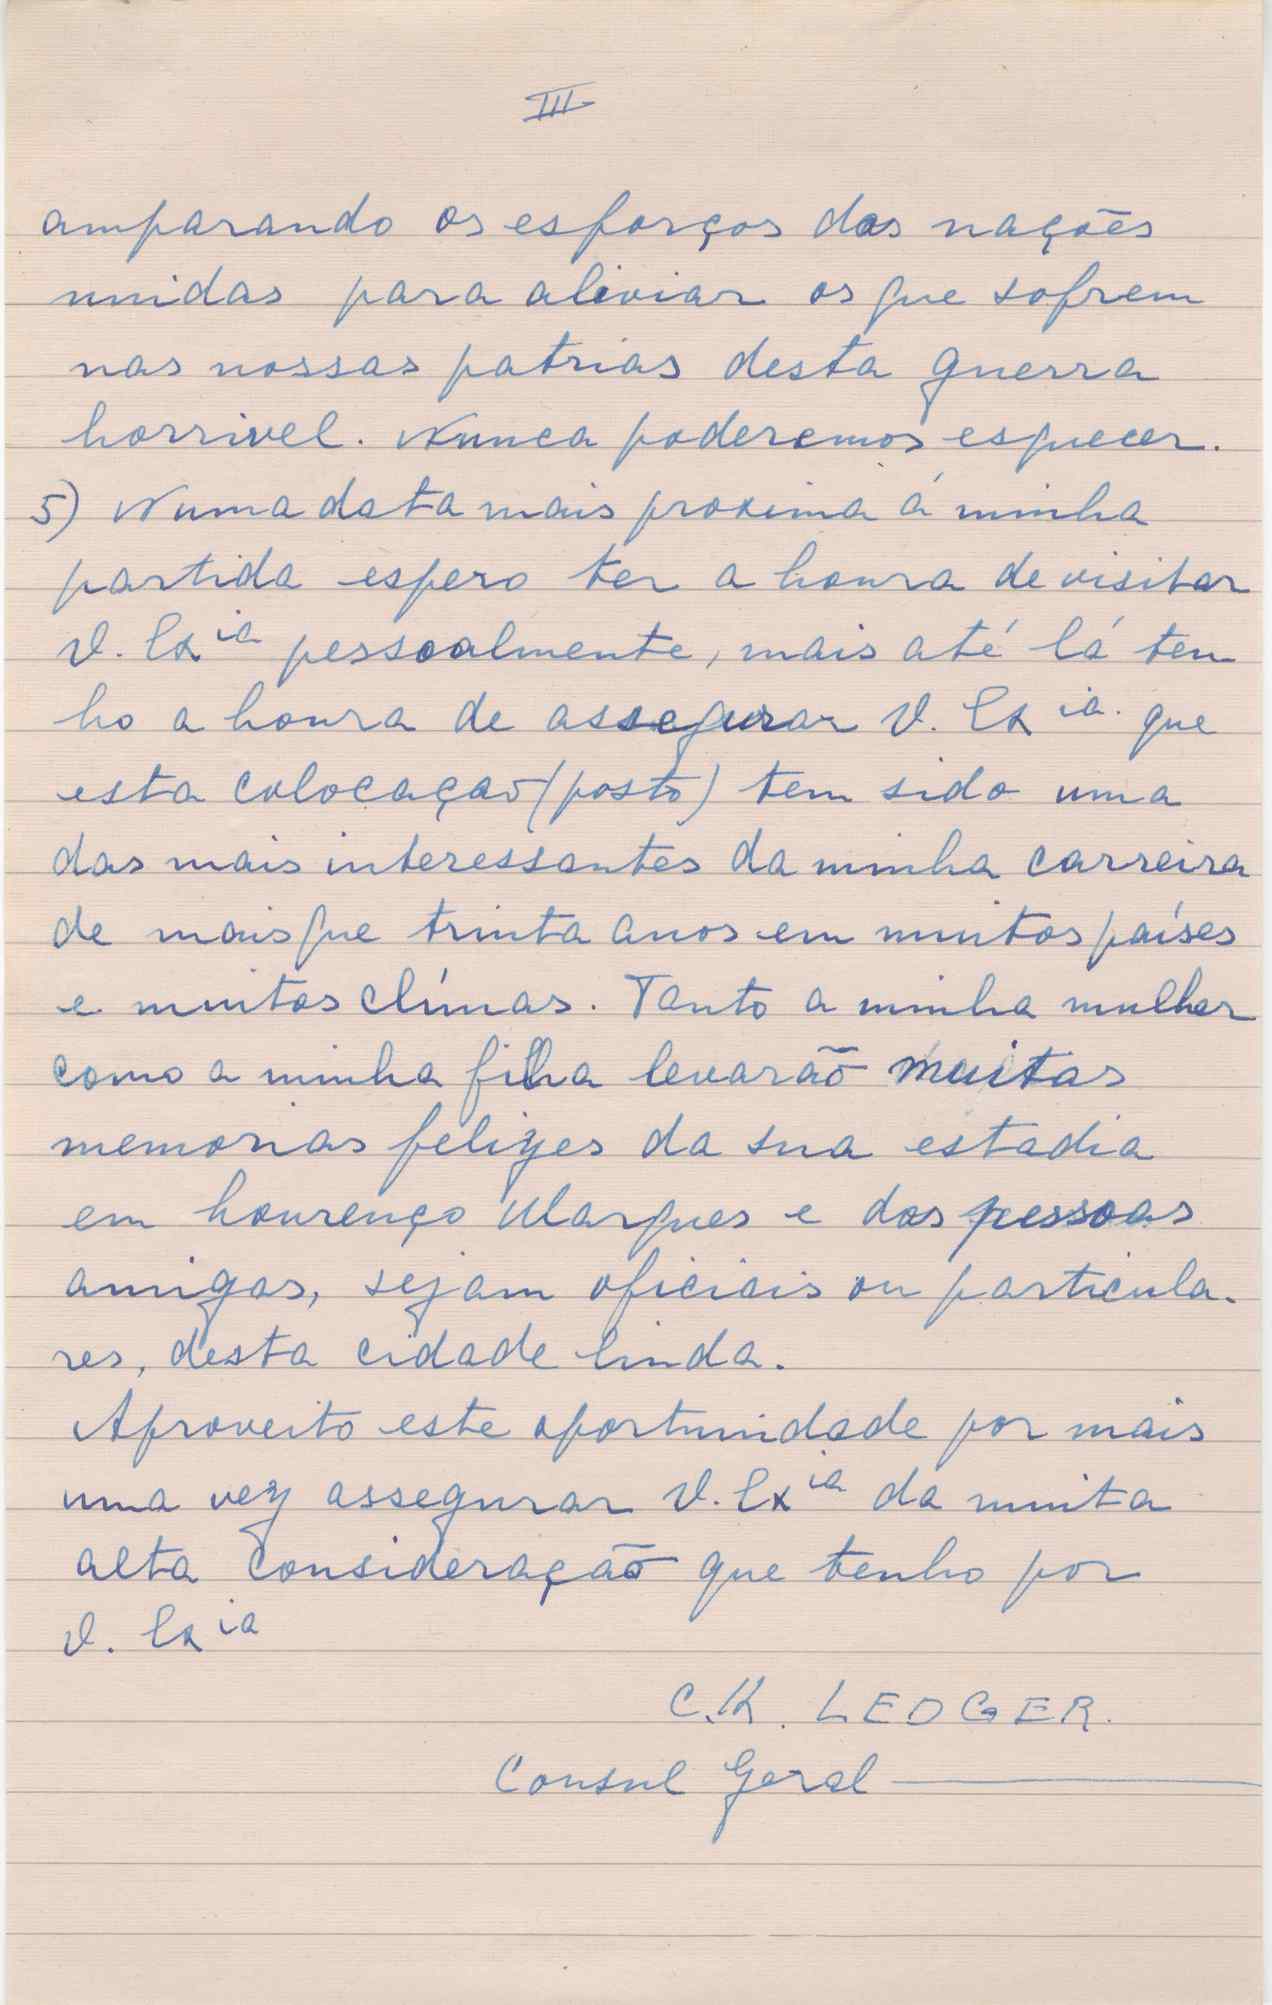 III
amparando os esforços das nações
unidas para aliviar os que sofrem
nas nossas patrias desta guerra
horrivel. Nunca poderemos esquecer.
5) Numa data mais proxima á minha
partida espero ter a honra de visitar
V. Exia pessoalmente, mais até lá ten
ho a honra de assegurar V. Exia. que
esta colocação (posto) tem sido uma
das mais interessantes da minha carreira
de mais que trinta anos em muitos países
e muitos clímas. Tanto a minha mulher
como a minha filha levarão muitas
memorias felizes da sua estadia
em Lourenço Marques e das pessoas
amigas, sejam oficiais ou particula-
res, desta cidade linda.
Aproveito este oportunidade por mais
uma vez assegurar V. Exia da muita
alta consideração que tenho por
V. Exia
C.K. LEDGER.
Consul Geral